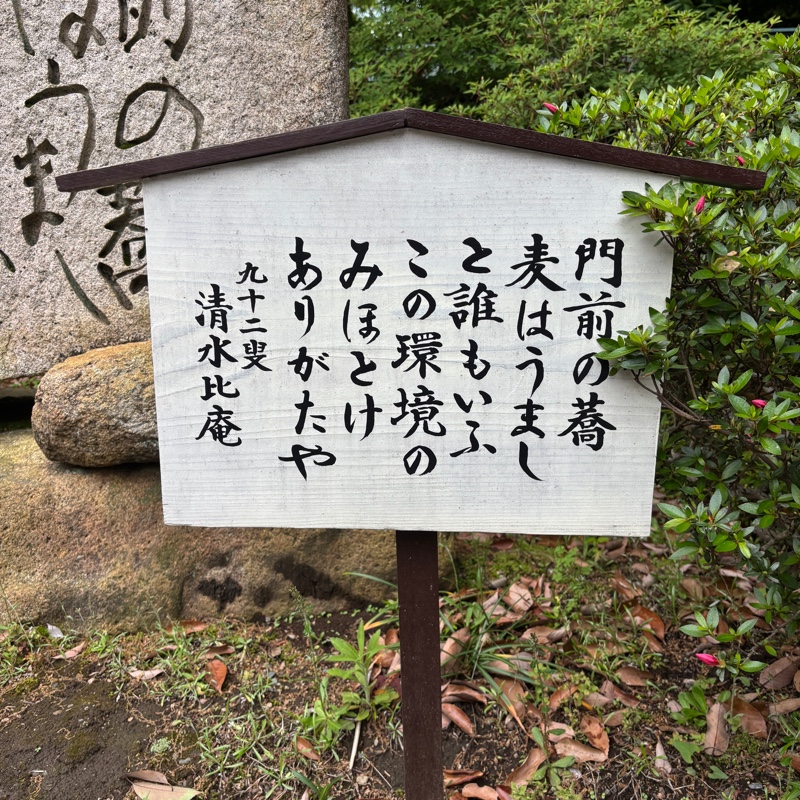 門前の蕎
麦はうまし
と誰もいふ
この環境の
みほとけ
ありがたや
九十二叟
清水比庵
前
の蕎
は
うま